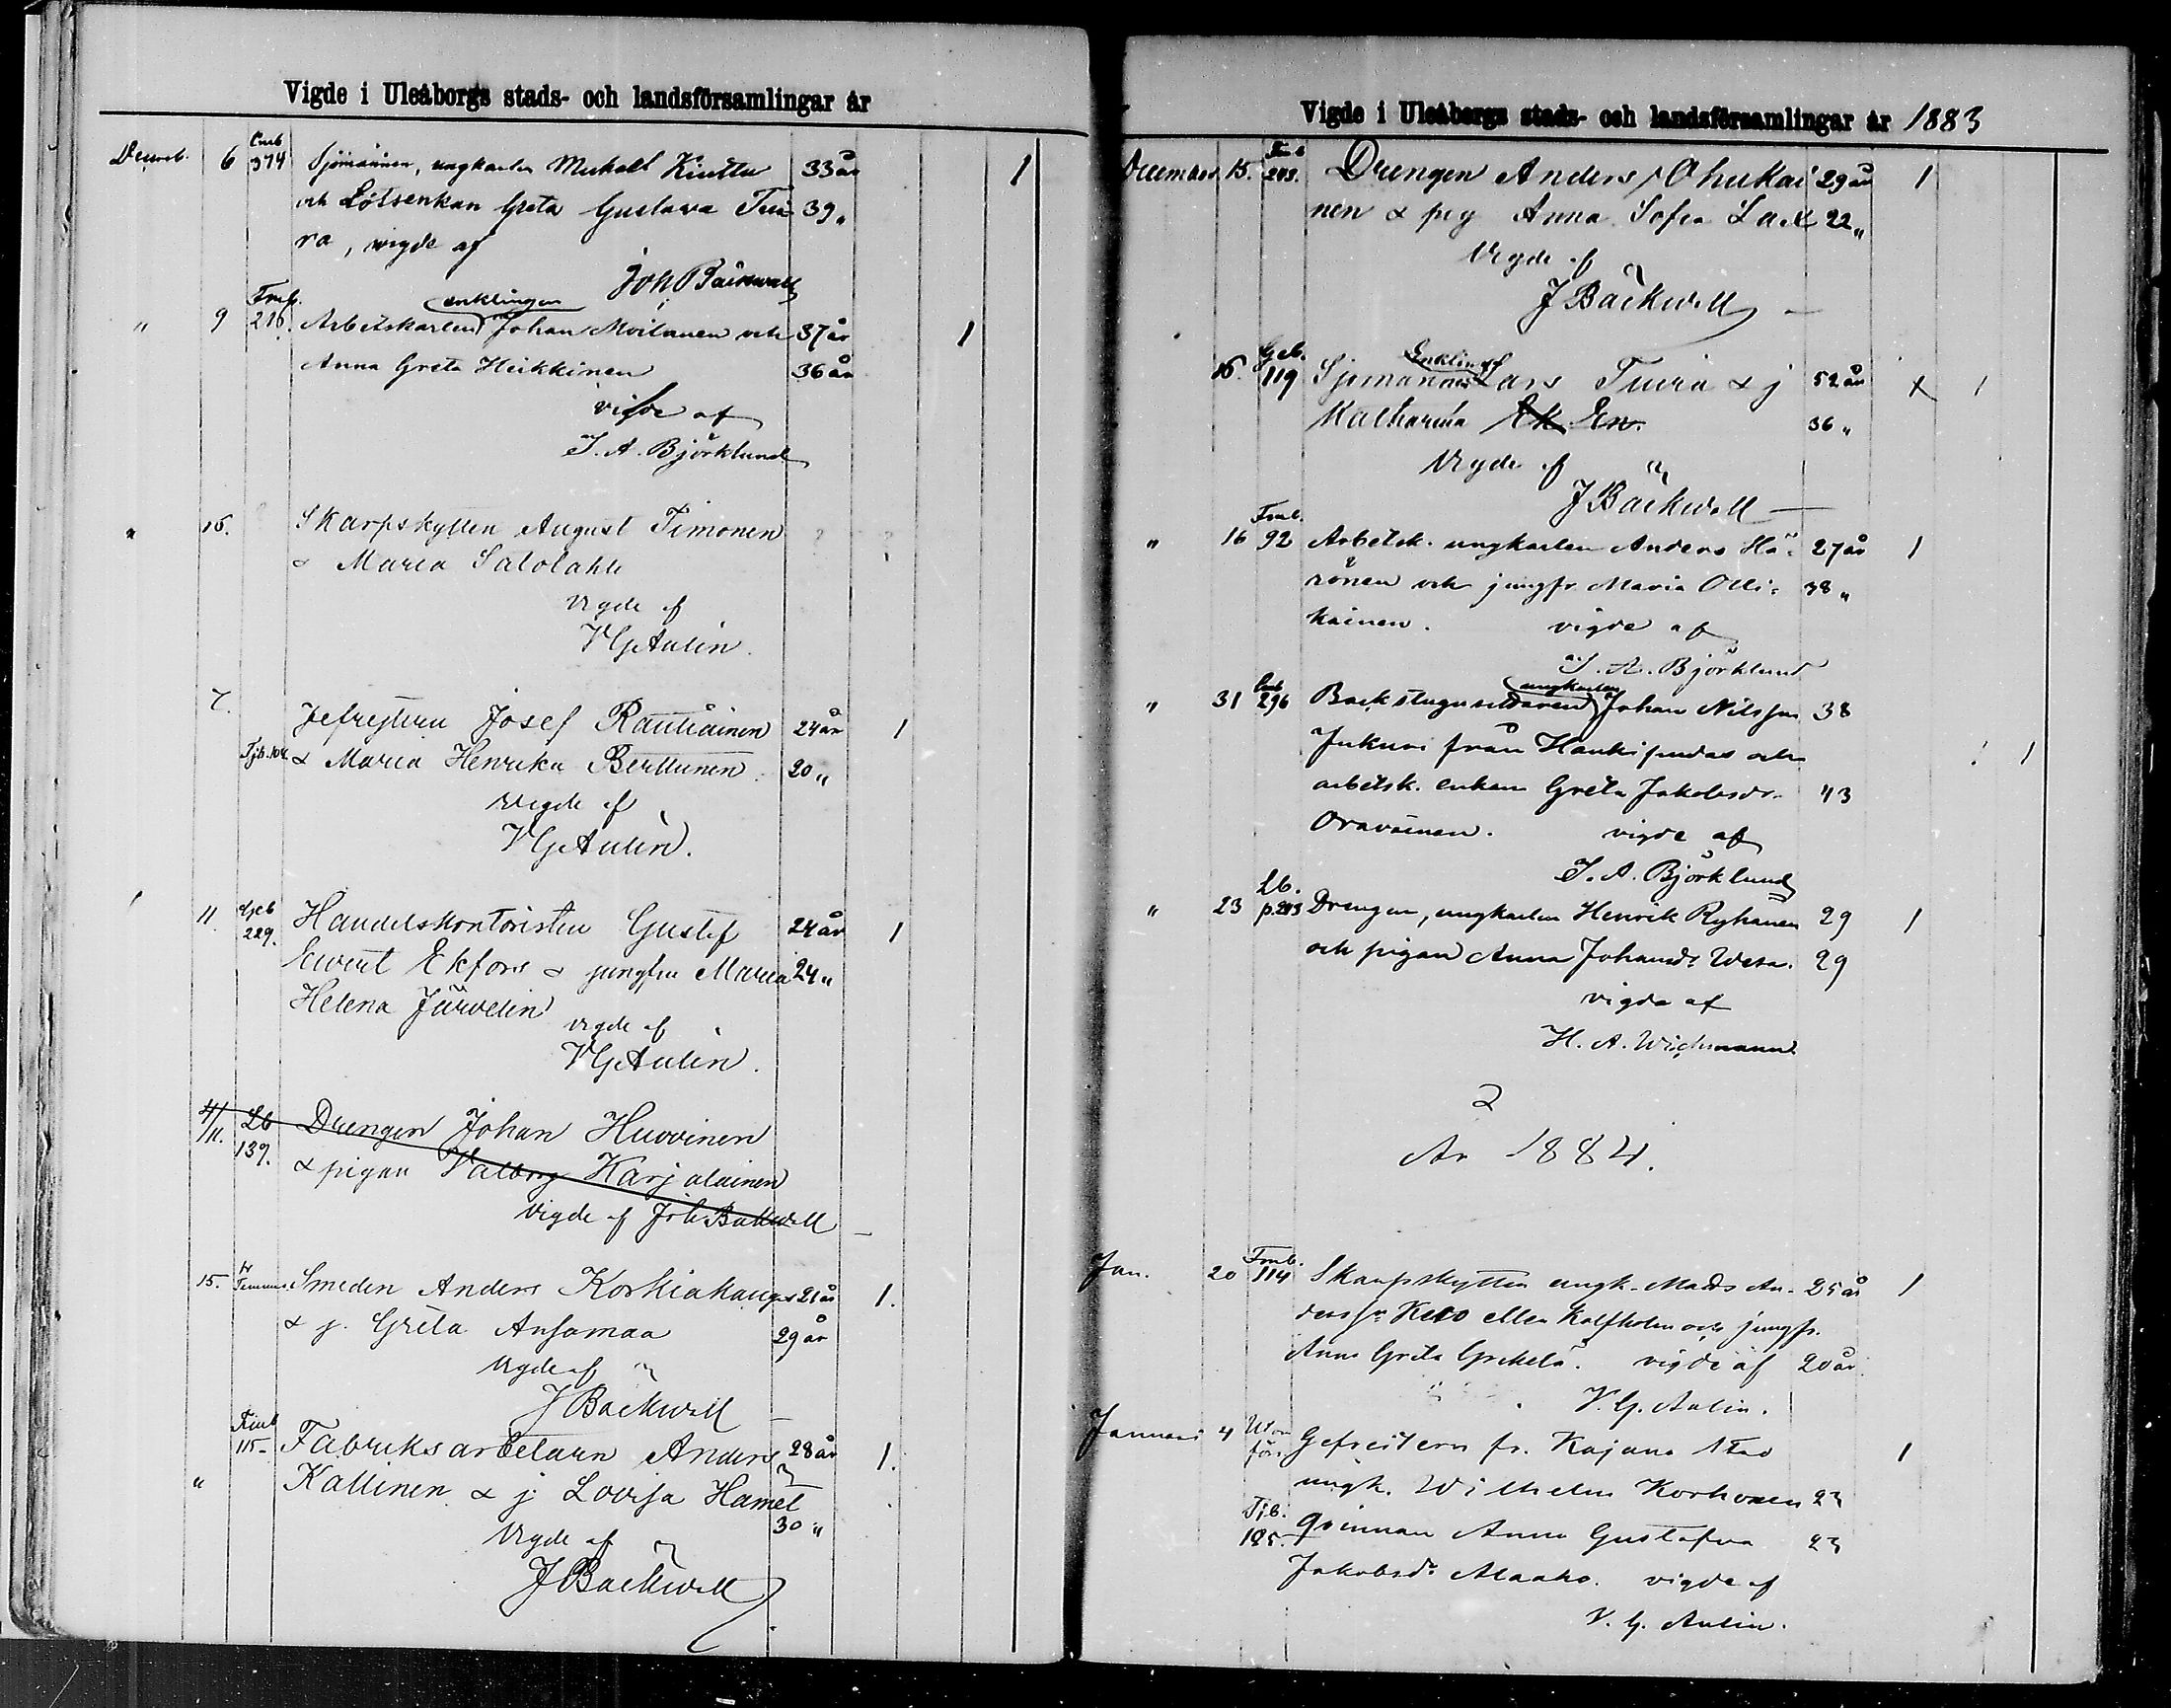 Vigde i Uleåborgs stads- och landsförsamlingar år
Decemb. 6 Cmb 374 Sjömannen, ungkarlen Mickell Kinttu 33 år 1
och Lotsenkan Greta Gustava Tui 39 "
ra, vigde af
Joh Bäckwall
enklingen
" 9 Fmb. 216. Arbetskarlen Johan Moilanen och 37 år 1
Anna Greta Heikkinen 36 år
vigde af
J. A. Björklund
" 16. Skarpskytten August Timonen ?
& Maria Salolahti
Vigde af
VGAulin.
7. Gefrejtern Josef Rautiainen 24 år 1
Tjb. 104. & Maria Henrika Berttunen 20 "
Vigde af
VGAulin.
11. Gcb 229. Handelskontoristen Gustaf 24 år 1
Ewert Ekfors & jungfru Maria 24 "
Helena Järvelin
vigde af
VGAulin.
4/11. Lb 139. Drengen Johan Huovinen
& pigan Valborg Karjalainen
Vigde af Joh Bäckwall
15. fr Temmes Smeden Anders Korkiakangas 21 år 1.
& j. Greta Ansamaa 29 år
Vigde af
J Bäckwall
" Fmb 115 Fabriksarbetarn Anders 28 år 1.
Kallinen & j: Lovisa Hamel
30 "
Vigde af
J Bäckwall
Vigde i Uleåborgs stads- och landsförsamlingar år 1883
December 15. Fmb 203. Drengen Anders Ohukai 29 år 1
nen & pig Anna Sofia Lax 22 "
Vigde af
J Bäckwall
Enkling
16. Gcb. 119 Sjömannen Lars Tuira & j 52 år x 1
Katharina Ek En. 36 "
Vigde af
J Bäckwall
" 16 Fmb. 92 Arbetsk. ungkarlen Anders Hä- 27 år 1
rönen och jungfr. Maria Olli- 38 "
kainen. vigde af
J. A. Björklund
ungkarlen
" 31 Cmb 296 Backstugusittaren Johan Nilsson 38
Jukuri från Haukipudas och 1
arbetsk. enkan Greta Jakobsdr. 43
Oravainen. vigde af
J. A. Björklund
" 23 Lb. p. 213 Drengen, ungkarlen Henrik Ryhänen 29 1
och pigan Anna Johansdr Wesa. 29
vigde af
H. A. Wichmann
År 1884.
Jan. 20 Fmb. 114 Skarpskytten ungk. Matts An- 25 år 1
derssn Keto eller Kalfholm och jungfr.
Anna Greta Grekelä. vigde af 20 år.
V. G. Aulin.
Januari 4 Utom förs. Gefreitern fr. Kajana stad 1
ungk. Wilhelm Korhonen 23
Tjb. 185. qvinnan Anna Gustafva 23
Jakobsdr Alaaho. vigde af
V. G. Aulin.